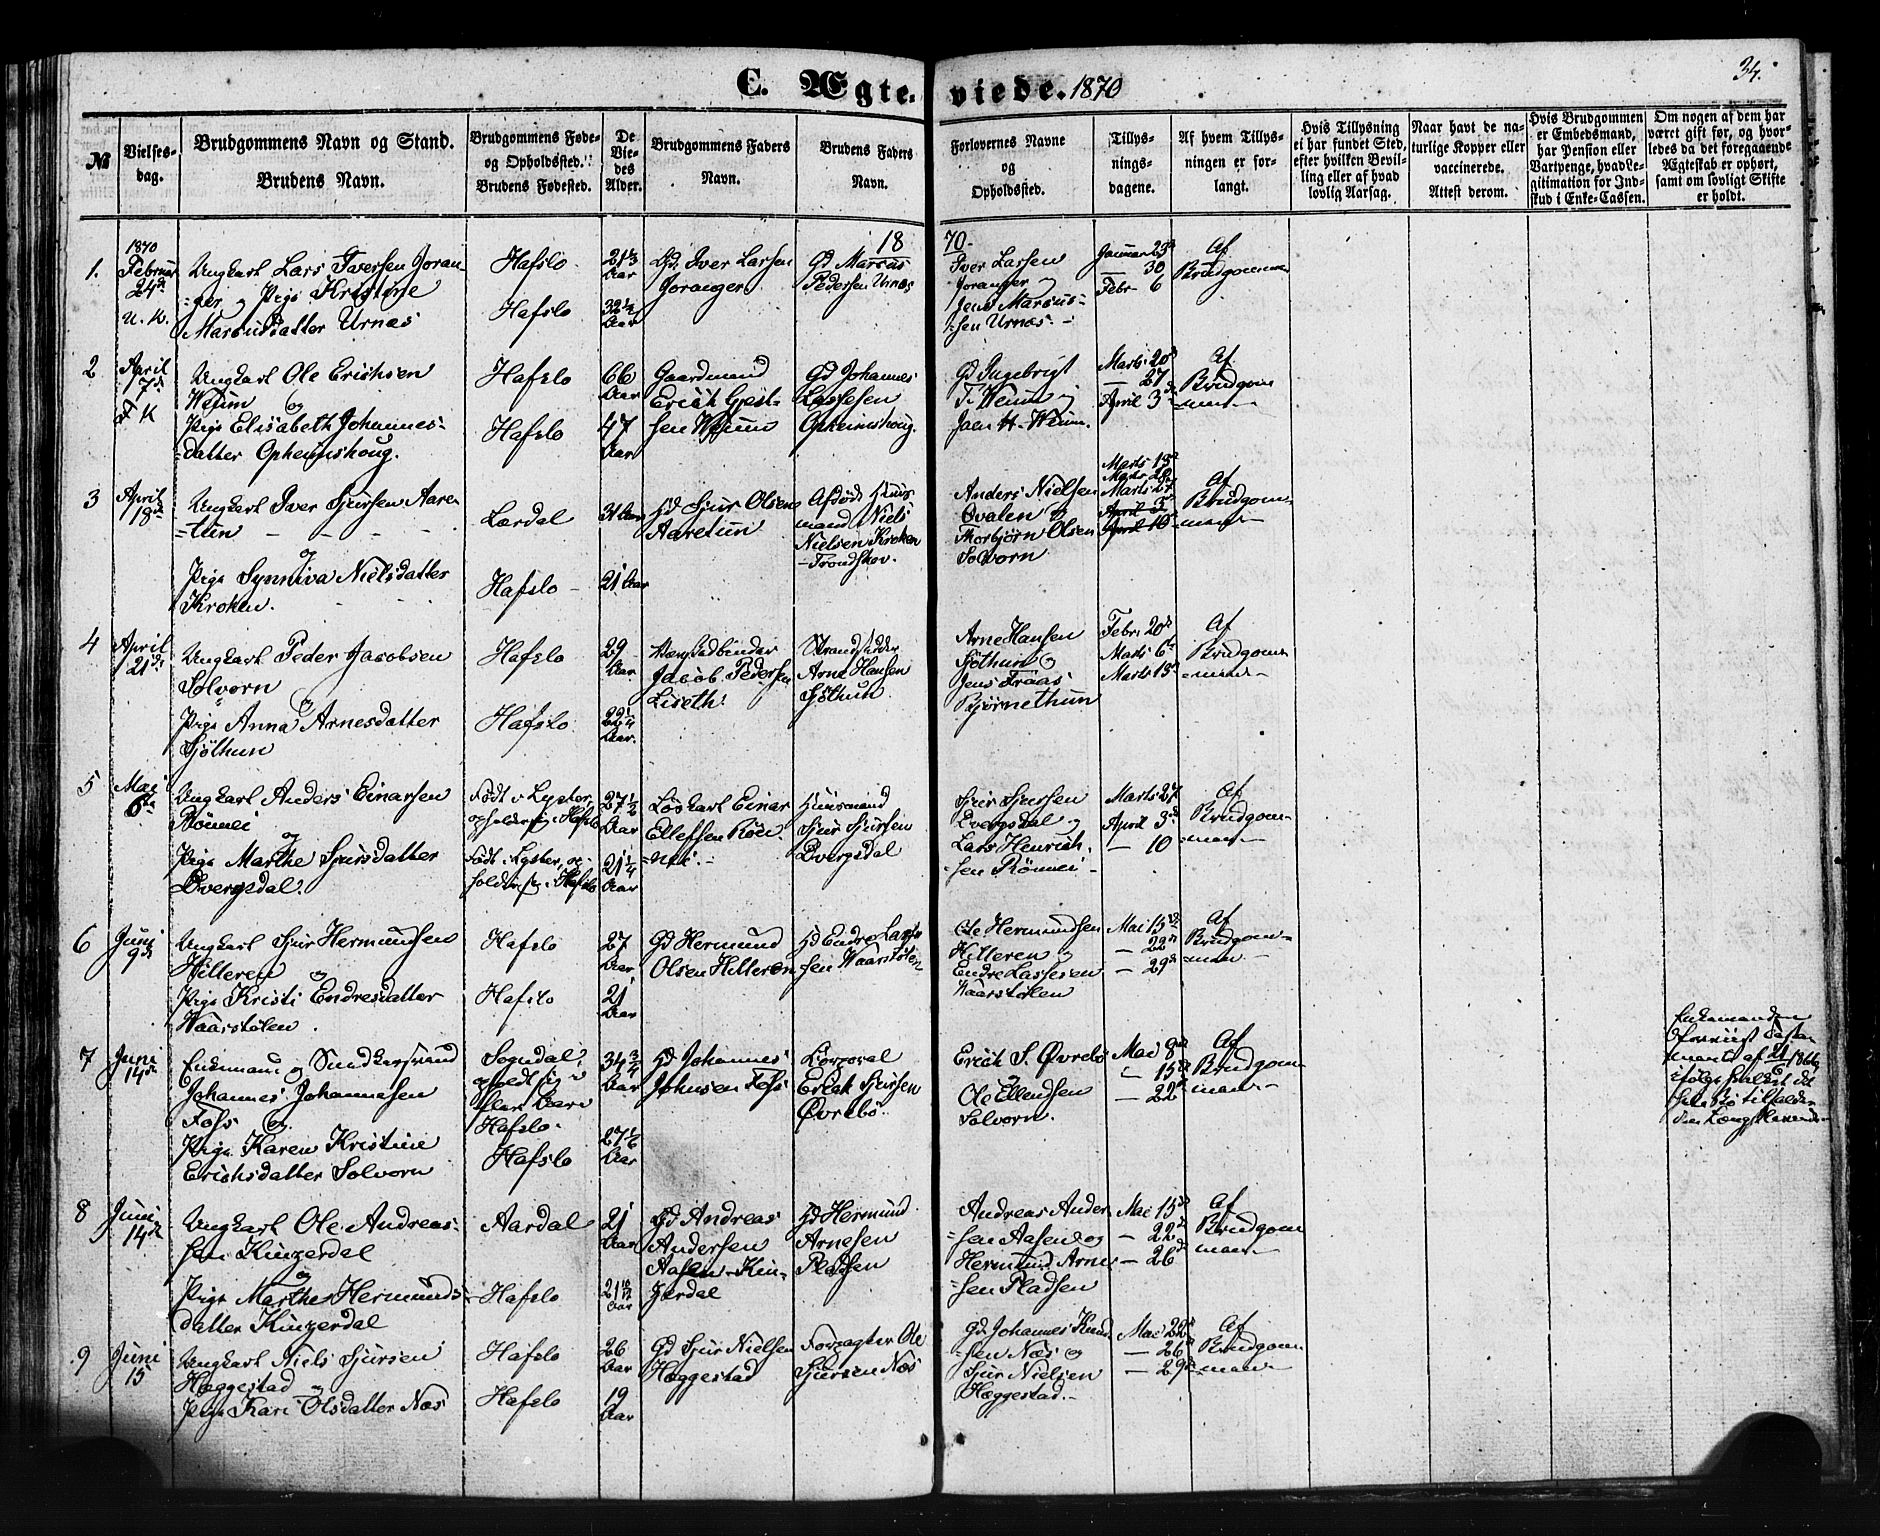 C. Ægte-viede. 1870
34.
№
Vielses-dag.
Brudgommens Navn og Stand.
Brudens Navn.
Brudgommens Føde- og Opholdssted.
Brudens Fødested.
De Viedes Alder.
Brudgommens Faders Navn.
Brudens Faders Navn.
Forlovernes Navne og Opholdssted.
Tillysningsdagene.
Af hvem Tillysningen er forlangt.
Hvis Tillysning ei har fundet Sted, efter hvilken Bevilling eller af hvad lovlig Aarsag.
Naar havt de naturlige Kopper eller vaccinerede. Attest derom.
Hvis Brudgommen er Embedsmand, har Pension eller Vartpenge, hvad Legitimation for Indskud i Enke-Cassen.
Om nogen af dem har været gift før, og hvorledes da det foregaaende Ægteskab er ophørt, samt om lovligt Skifte er holdt.
1870
18 70
1. Februar 24de U. K.
Ungkarl Lars Iversen Joran-
ger og Pige Kristine
Marcusdatter Urnæs
Hafslo
Hafslo
21 1/3 Aar
32 1/2 Aar
Gd. Iver Larsen
Joranger
Gd Marcus
Pedersen Urnæs
Iver Larsen
Joranger og
Jens Marcus-
sen Urnæs
Januar 23de
— 30
Febr 6
Af
Brudgommen
2 April 7de F K
Ungkarl Ole Erichsen
Weum og
Pige Elisabeth Johannes-
datter Opheimshoug.
Hafslo
Hafslo
66 Aar
47 Aar
Gaardmand
Erick Gjest-
sen Weum
Gd Johannes
Lassesen
Opheimshoug.
Gd Ingebrigt
T. Weum og
Jaen H. Weum.
Marts 20de
— 27
April 3de
Af
Brudgom-
men
3 April 18de
Ungkarl Iver Sjursen Aare-
tun
og
Pige Synniva Nielsdatter
Kroken.
Lærdal
Hafslo
31 Aar
21 Aar
Gd Sjur Olsen
Aaretun
Afdøde Huus-
mand Niels
Nielsen Kroken
Trondskov.
Anders Nielsen
Øvalen og
Thorbjørn Olsen
Solvorn
Marts 13de
Marts 20de
Marts 27
April 3de
April 10
Af
Brudgom-
men
4 April 21de
Ungkarl Peder Jacobsen
Solvorn
og
Pige Anna Arnesdatter
Sjøthun
Hafslo
Hafslo
29 Aar
22 1/4 Aar.
Jacob Pedersen
Liseth
Strandsidder
Arne Hansen
Sjøthun
Arne Hansen
Sjøthun og
Jens Traas
Bjørnethun
Febr: 20de
Marts 6te
Marts 13de
Af
Brudgom-
men
5 Mai 6te
Ungkarl Anders Einarsen
Rönnei
og
Pige Marthe Sjursdatter
Dvergsdal.
Født i Lyster,
opholder sig i Hafslo
Født i Lyster, op-
holder sig i Hafslo
27 1/2 Aar
21 1/4 Aar
Løskarl Einar
Ellefsen Rön-
nei
Huusmand
Sjur Sjursen
Dvergsdal
Sjur Sjursen
Dvergsdal og
Lars Henrich-
sen Rönnei
Marts 27
April 3de
— 10
Af
Brudgom-
men
6 Juni 9de
Ungkarl Sjur Hermundsen
Hilleren og
Pige Kristi Endresdatter
Waarstølen.
Hafslo
Hafslo
27 Aar
21 Aar
Gd Hermund
Olsen Hilleren
Gd Endre Lasse-
sen Waarstølen
Ole Hermundsen
Hilleren og
Endre Lassesen
Waarstølen
Mai 15de
— 22de
— 29de
Af
Brudgom-
men
7 Juni 14de
Enkemand og Sundkarsvend
Johannes Johannesen
Foss og
Pige Karen Kristine
Erichsdatter Solvorn
Sogndal,
opholdt sig i
flere Aar i
Hafslo.
Hafslo
34 3/4 Aar
27 1/6 Aar
Gd Johannes
Johnsen Foss
Corporal
Erick Sjursen
Øvrebø
Erick S. Øvrebø
Ole Ellendsen
Solvorn.
Mai 8de
" 15de
— 22de
Af
Brudgom-
men
Enkemanden
foreviist Testa-
ment af 21/6 1866
ifølge hvilket det
hele Bo tilfalder
den Længstlevende
8 Juni 14de
Ungkarl Ole Andreas-
sen Kinzerdal
og
Pige Marthe Hermunds-
datter Kinzerdal
Aardal
Hafslo
21 Aar
Gd Andreas
Andersen
Aasen-Kin-
zerdal
Gd Hermund
Arnesen
Pladsen
Andreas Ander-
sen Aasen og
Hermund Arne-
sen Pladsen
Mai 15de
— 22de
— 26de
Af
Brudgom-
men
9 Juni 15
Ungkarl Niels Sjursen
Hæggestad og
Pige Kari Olsdatter Næs
Hafslo
Hafslo
26 Aar
19 Aar
Gd Sjur Nielsen
Hæggestad
Forpagter Ole
Sjursen Næs
Gd. Johannes Knud-
sen Næs og
Sjur Nielsen
Hæggestad.
Mai 22de
— 26de
— 29de
Af
Brudgom-
men